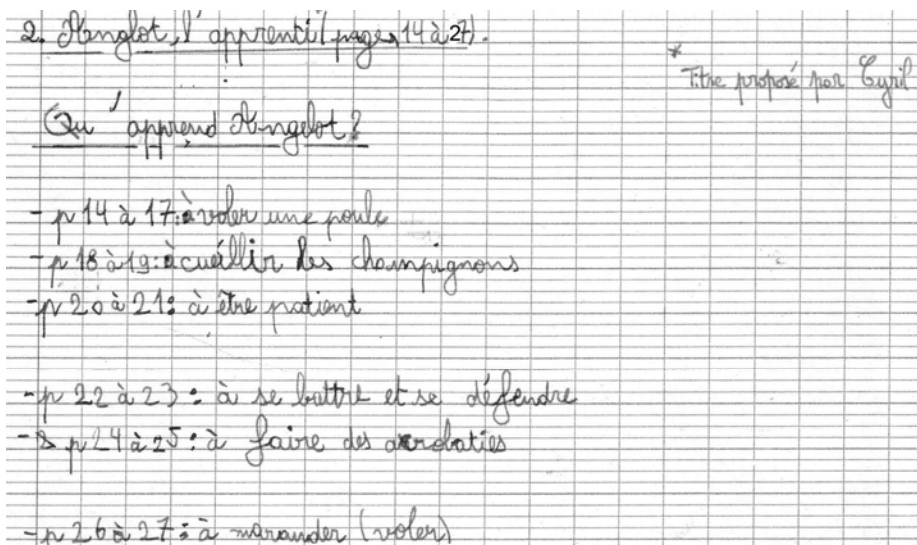 2. Angelot, l'apprenti (pages 14 à 27).
*
Titre proposé par Cyril
Qu'apprend Angelot ?
- p 14 à 17 : à voler une poule
- p 18 à 19 : à cuéillir des champignons
- p 20 à 21 : à être patient
- p 22 à 23 : à se battre et se défendre
- p 24 à 25 : à faire des acrobaties
- p 26 à 27 : à marauder (voler)